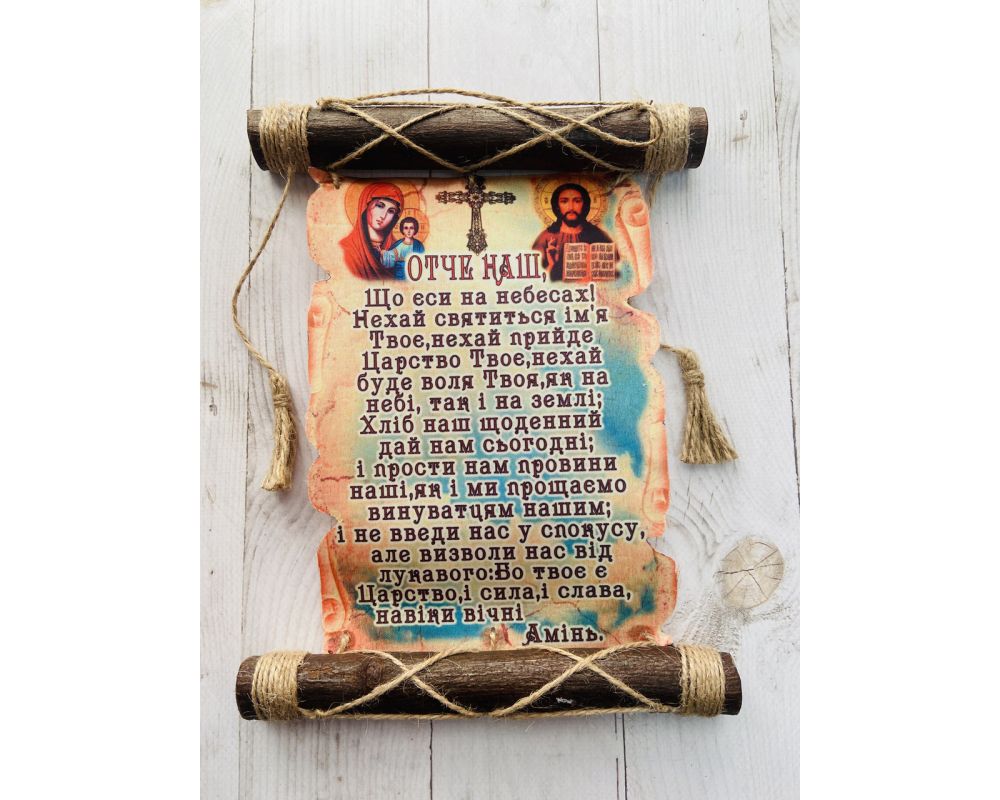 ОТЧЕ НАШ,
Що єси на небесах!
Нехай святиться ім'я
Твоє,нехай прийде
Царство Твоє,нехай
буде воля Твоя,як на
небі, так і на землі;
Хліб наш щоденний
дай нам сьогодні;
і прости нам провини
наші,як і ми прощаємо
винуватцям нашим;
і не введи нас у спокусу,
але визволи нас від
лукавого:Бо твоє є
Царство,і сила,і слава,
навіки вічні
Амінь.